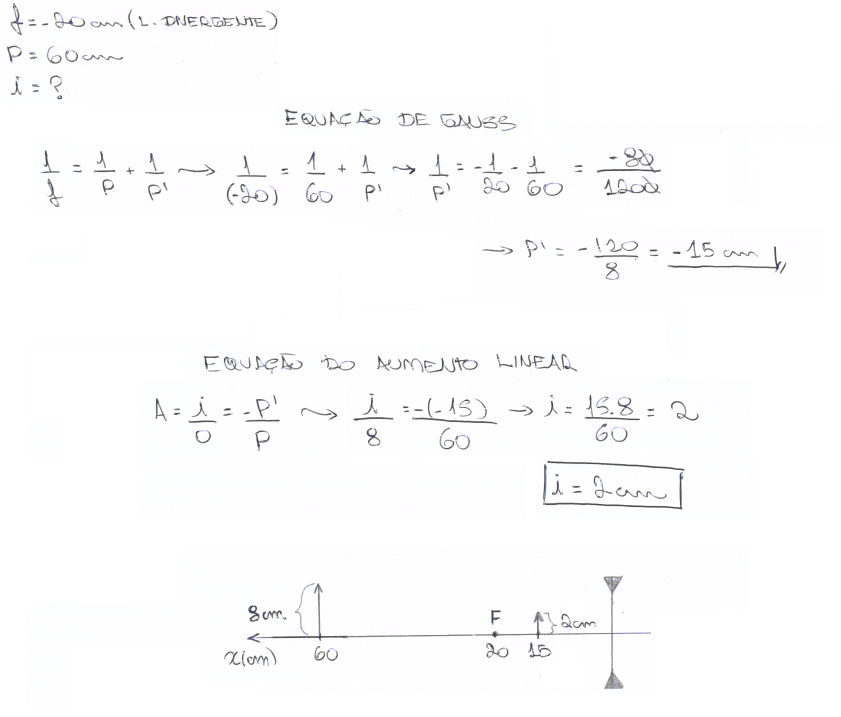 f = -20 cm (L. DIVERGENTE)
P = 60 cm
i = ?
EQUAÇÃO DE GAUSS
1/f = 1/P + 1/P' → 1/(-20) = 1/60 + 1/P' → 1/P' = -1/20 - 1/60 = -80/1200
→ P' = -120/8 = -15 cm
EQUAÇÃO DO AUMENTO LINEAR
A = i/O = -P'/P → i/8 = -(-15)/60 → i = 15.8/60 = 2
i = 2 cm
8cm F 2cm
x(cm) 60 20 15